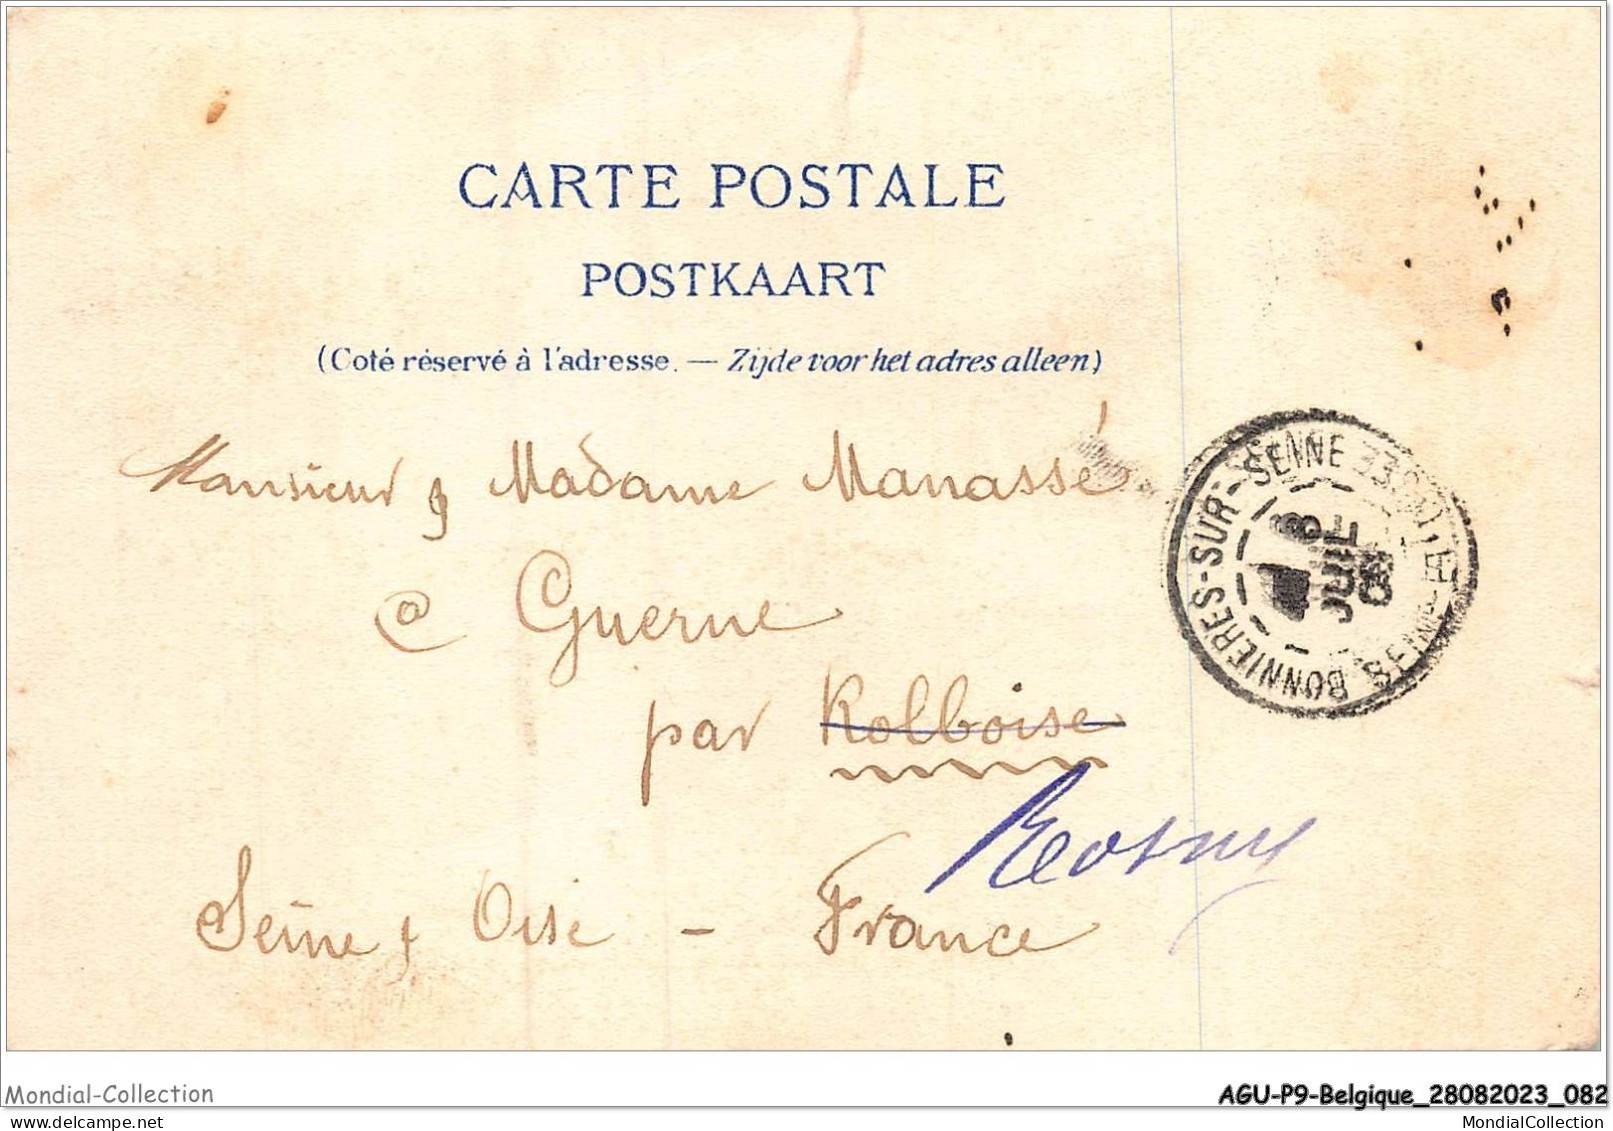 CARTE POSTALE
POSTKAART
(Coté réservé à l'adresse. — Zijde voor het adres alleen)
Monsieur & Madame Manassé
@ Guerne
par Rolboise
Rosny
Seine & Oise - France
BONNIERES-SUR-SEINE
8
JUIL
Mondial-Collection
AGU-P9-Belgique_28082023_082
www.delcampe.net
MondialCollection